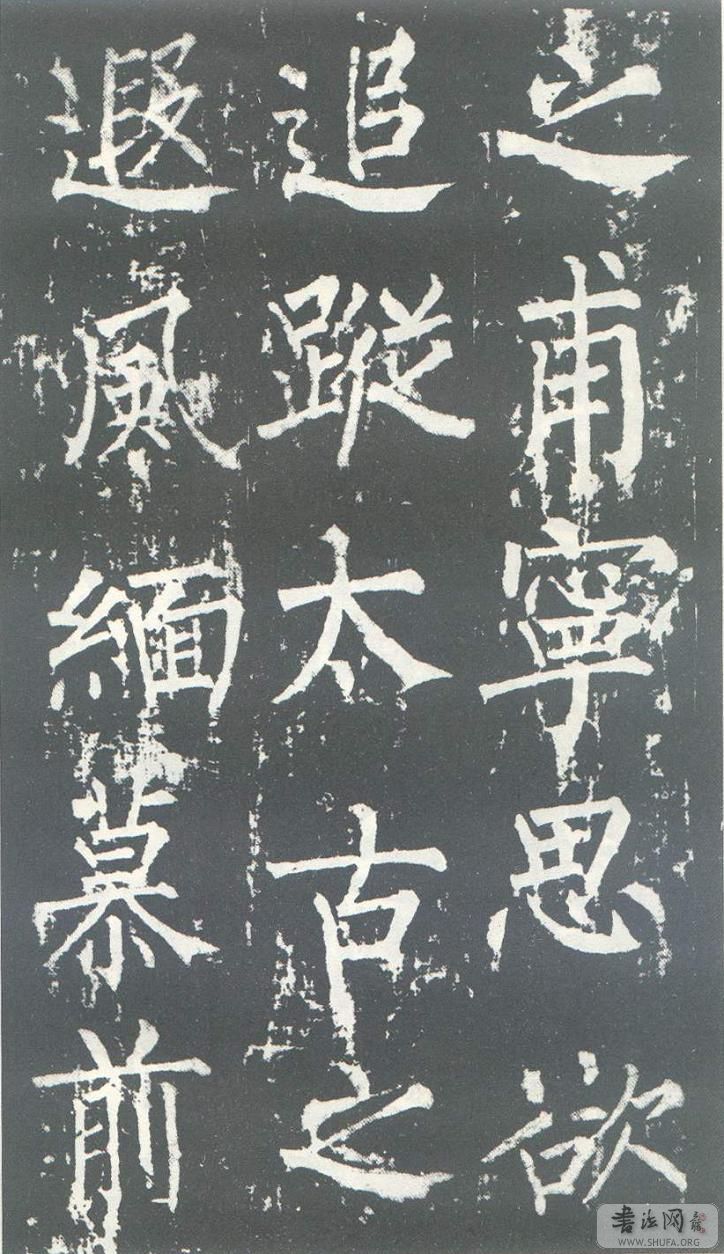 之甫寧思欲
追蹤太古之
遐風緬慕前
书法网
WWW.SHUFA.ORG